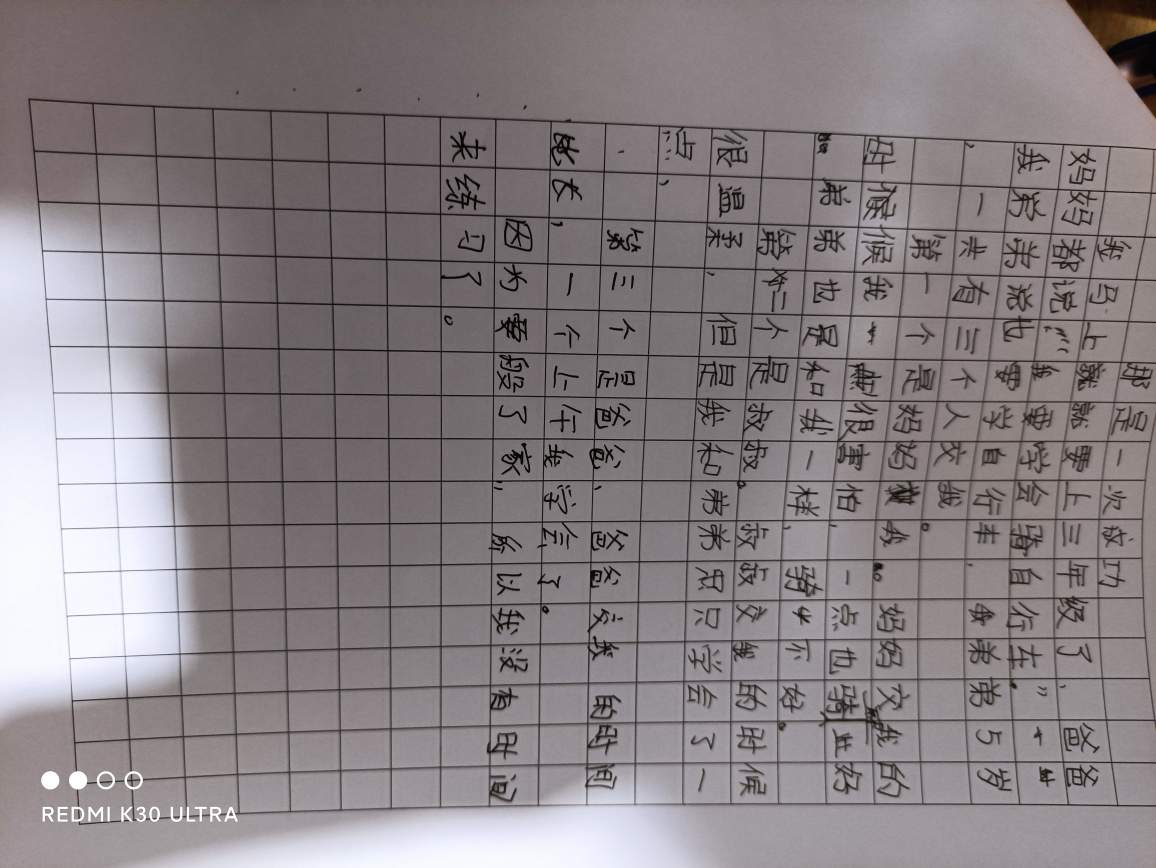 那是一次成功
我马上就就要上三年级了,爸爸
妈妈都说:“我要学会骑自行车。”
我弟弟说也要学自行车,我弟弟5岁
,一共有三个人交我。
第一个是妈妈教我。妈妈交我的
时候候我很害怕,一点也骑不好
弟弟也是和我一样,骑不好。
第二个是叔叔。叔叔交我的时候
很温柔,但是我和弟弟只学会了一
点,
第三个是爸爸、爸爸交我的时间
长,一个上午我学会了。
因为要般了家,所以我没有时间
来练习了。
REDMI K30 ULTRA